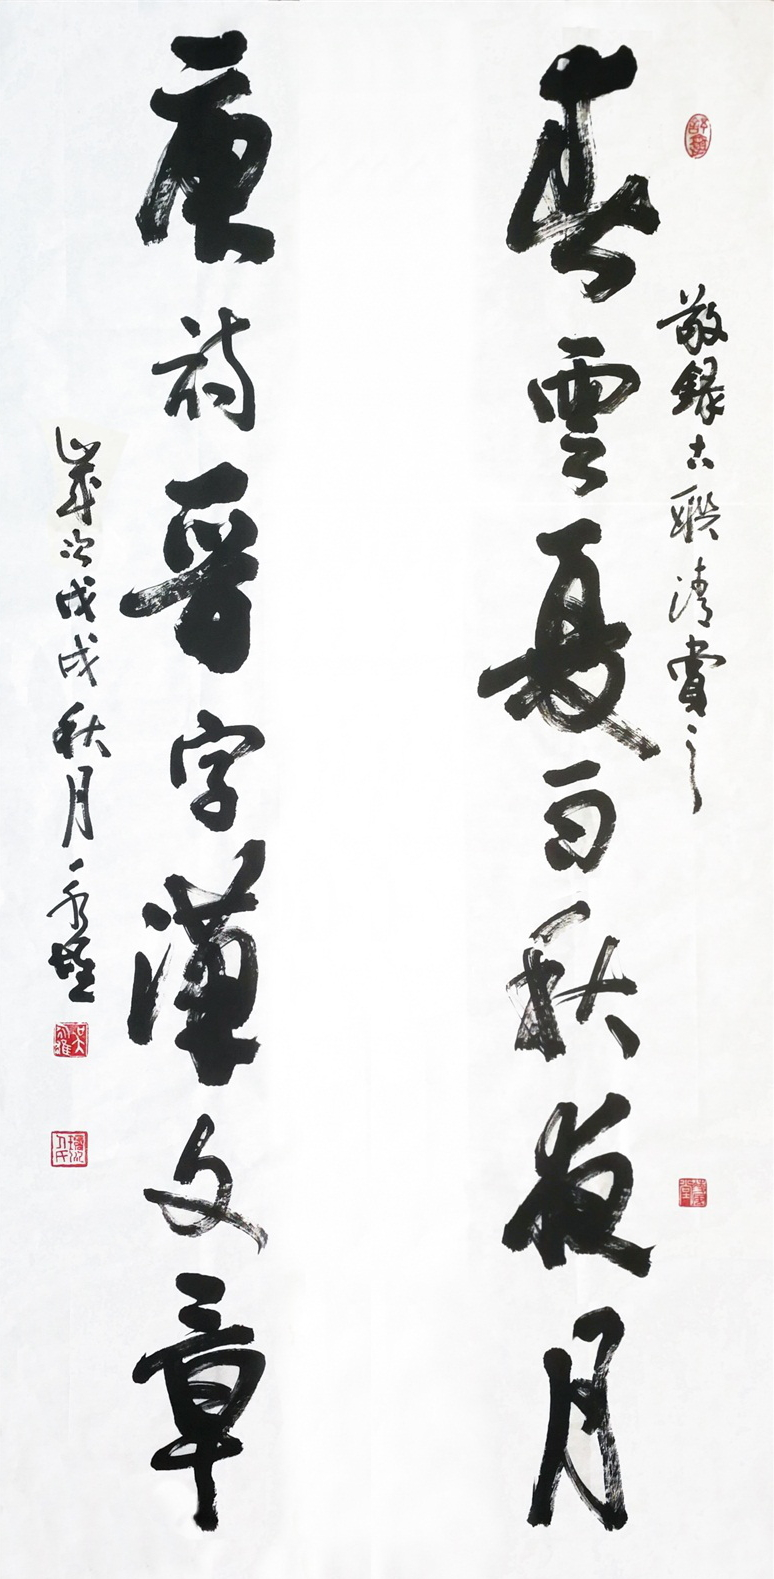 敬録古聯清賞之
春雲夏雨秋夜月
唐詩晉字漢文章
歲次戊戌秋月